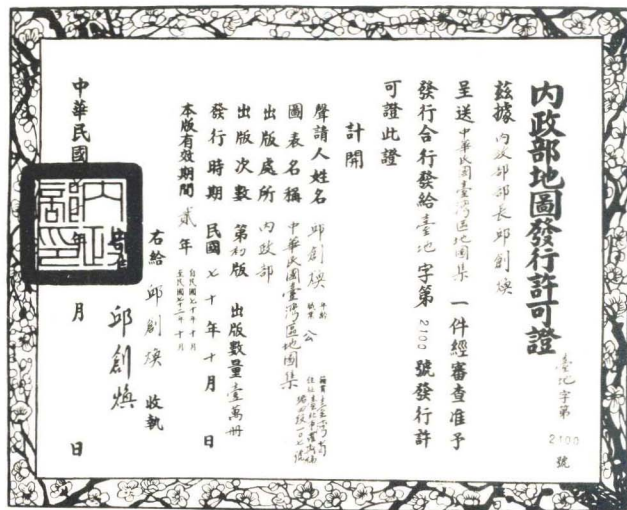 內政部地圖發行許可證
臺地字第2100號
茲據內政部部長邱創煥
呈送中華民國臺灣區地圖集一件經審查准予
發行合行發給臺地字第2100號發行許
可證此證
計開
聲請人姓名 邱創煥 年齡 職業 公
圖表名稱 中華民國臺灣區地圖集
出版處所 內政部
出版次數 第初版 出版數量 壹萬冊
發行時期 民國七十年十月 日
本版有效期間 貳年 自民國七十年十月 至民國七十二年十月
右給 邱創煥 收執
邱創煥
中華民國 年 月 日